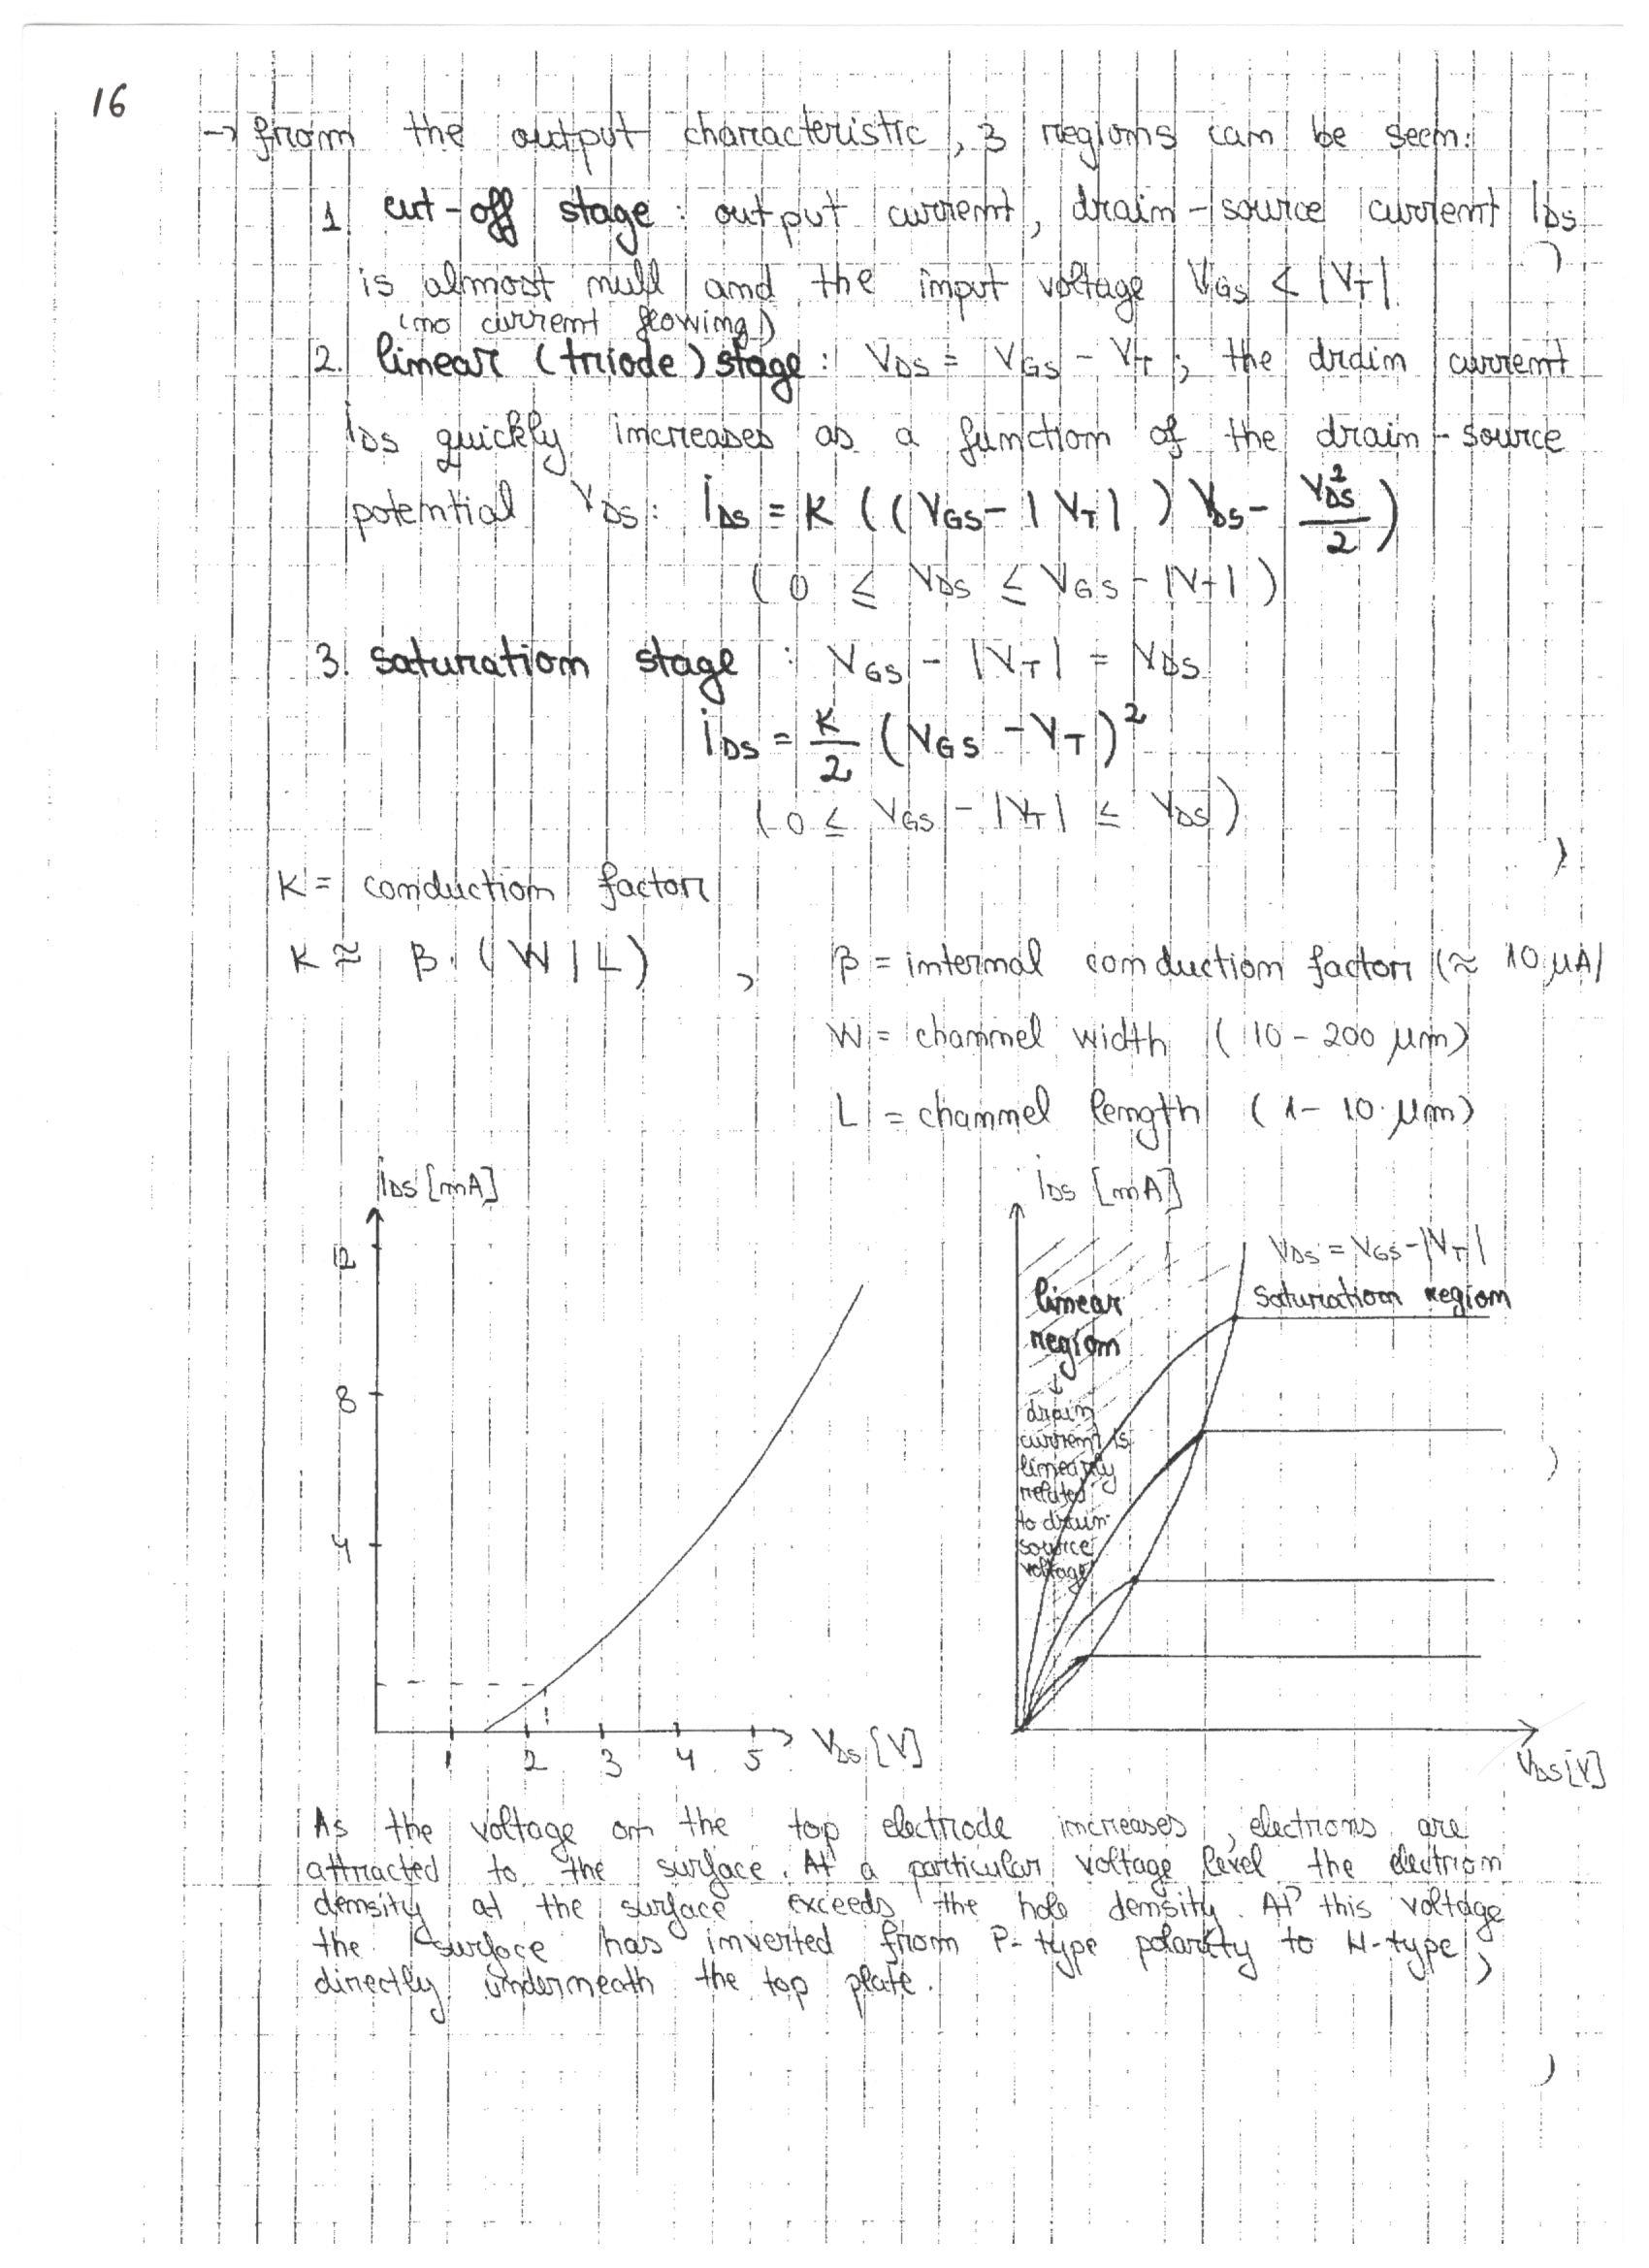 16
→ from the output characteristic, 3 regions can be seen:
1. cut-off stage : output current, drain-source current IDS
is almost null and the input voltage VGS < |VT|.
(no current flowing)
2. linear (triode) stage : VDS = VGS - VT ; the drain current
IDS quickly increases as a function of the drain-source
potential VDS : IDS = K ((VGS - |VT|) VDS - VDS²/2)
(0 ≤ VDS ≤ VGS - |VT|)
3. saturation stage : VGS - |VT| = VDS
IDS = K/2 (VGS - VT)²
(0 ≤ VGS - |VT| ≤ VDS)
K = conduction factor
K ≈ β · (W/L) , β = internal conduction factor (≈ 10 μA/
W = channel width (10 - 200 μm)
L = channel length (1 - 10 μm)
IDS [mA]
12
8
4
1 2 3 4 5 VDS [V]
IDS [mA]
VDS = VGS - |VT|
saturation region
linear
region
↓
drain
current is
linearly
related
to drain
source
voltage
VDS [V]
As the voltage on the top electrode increases, electrons are
attracted to the surface. At a particular voltage level the electron
density at the surface exceeds the hole density. At this voltage
the surface has inverted from P-type polarity to N-type,
directly underneath the top plate.